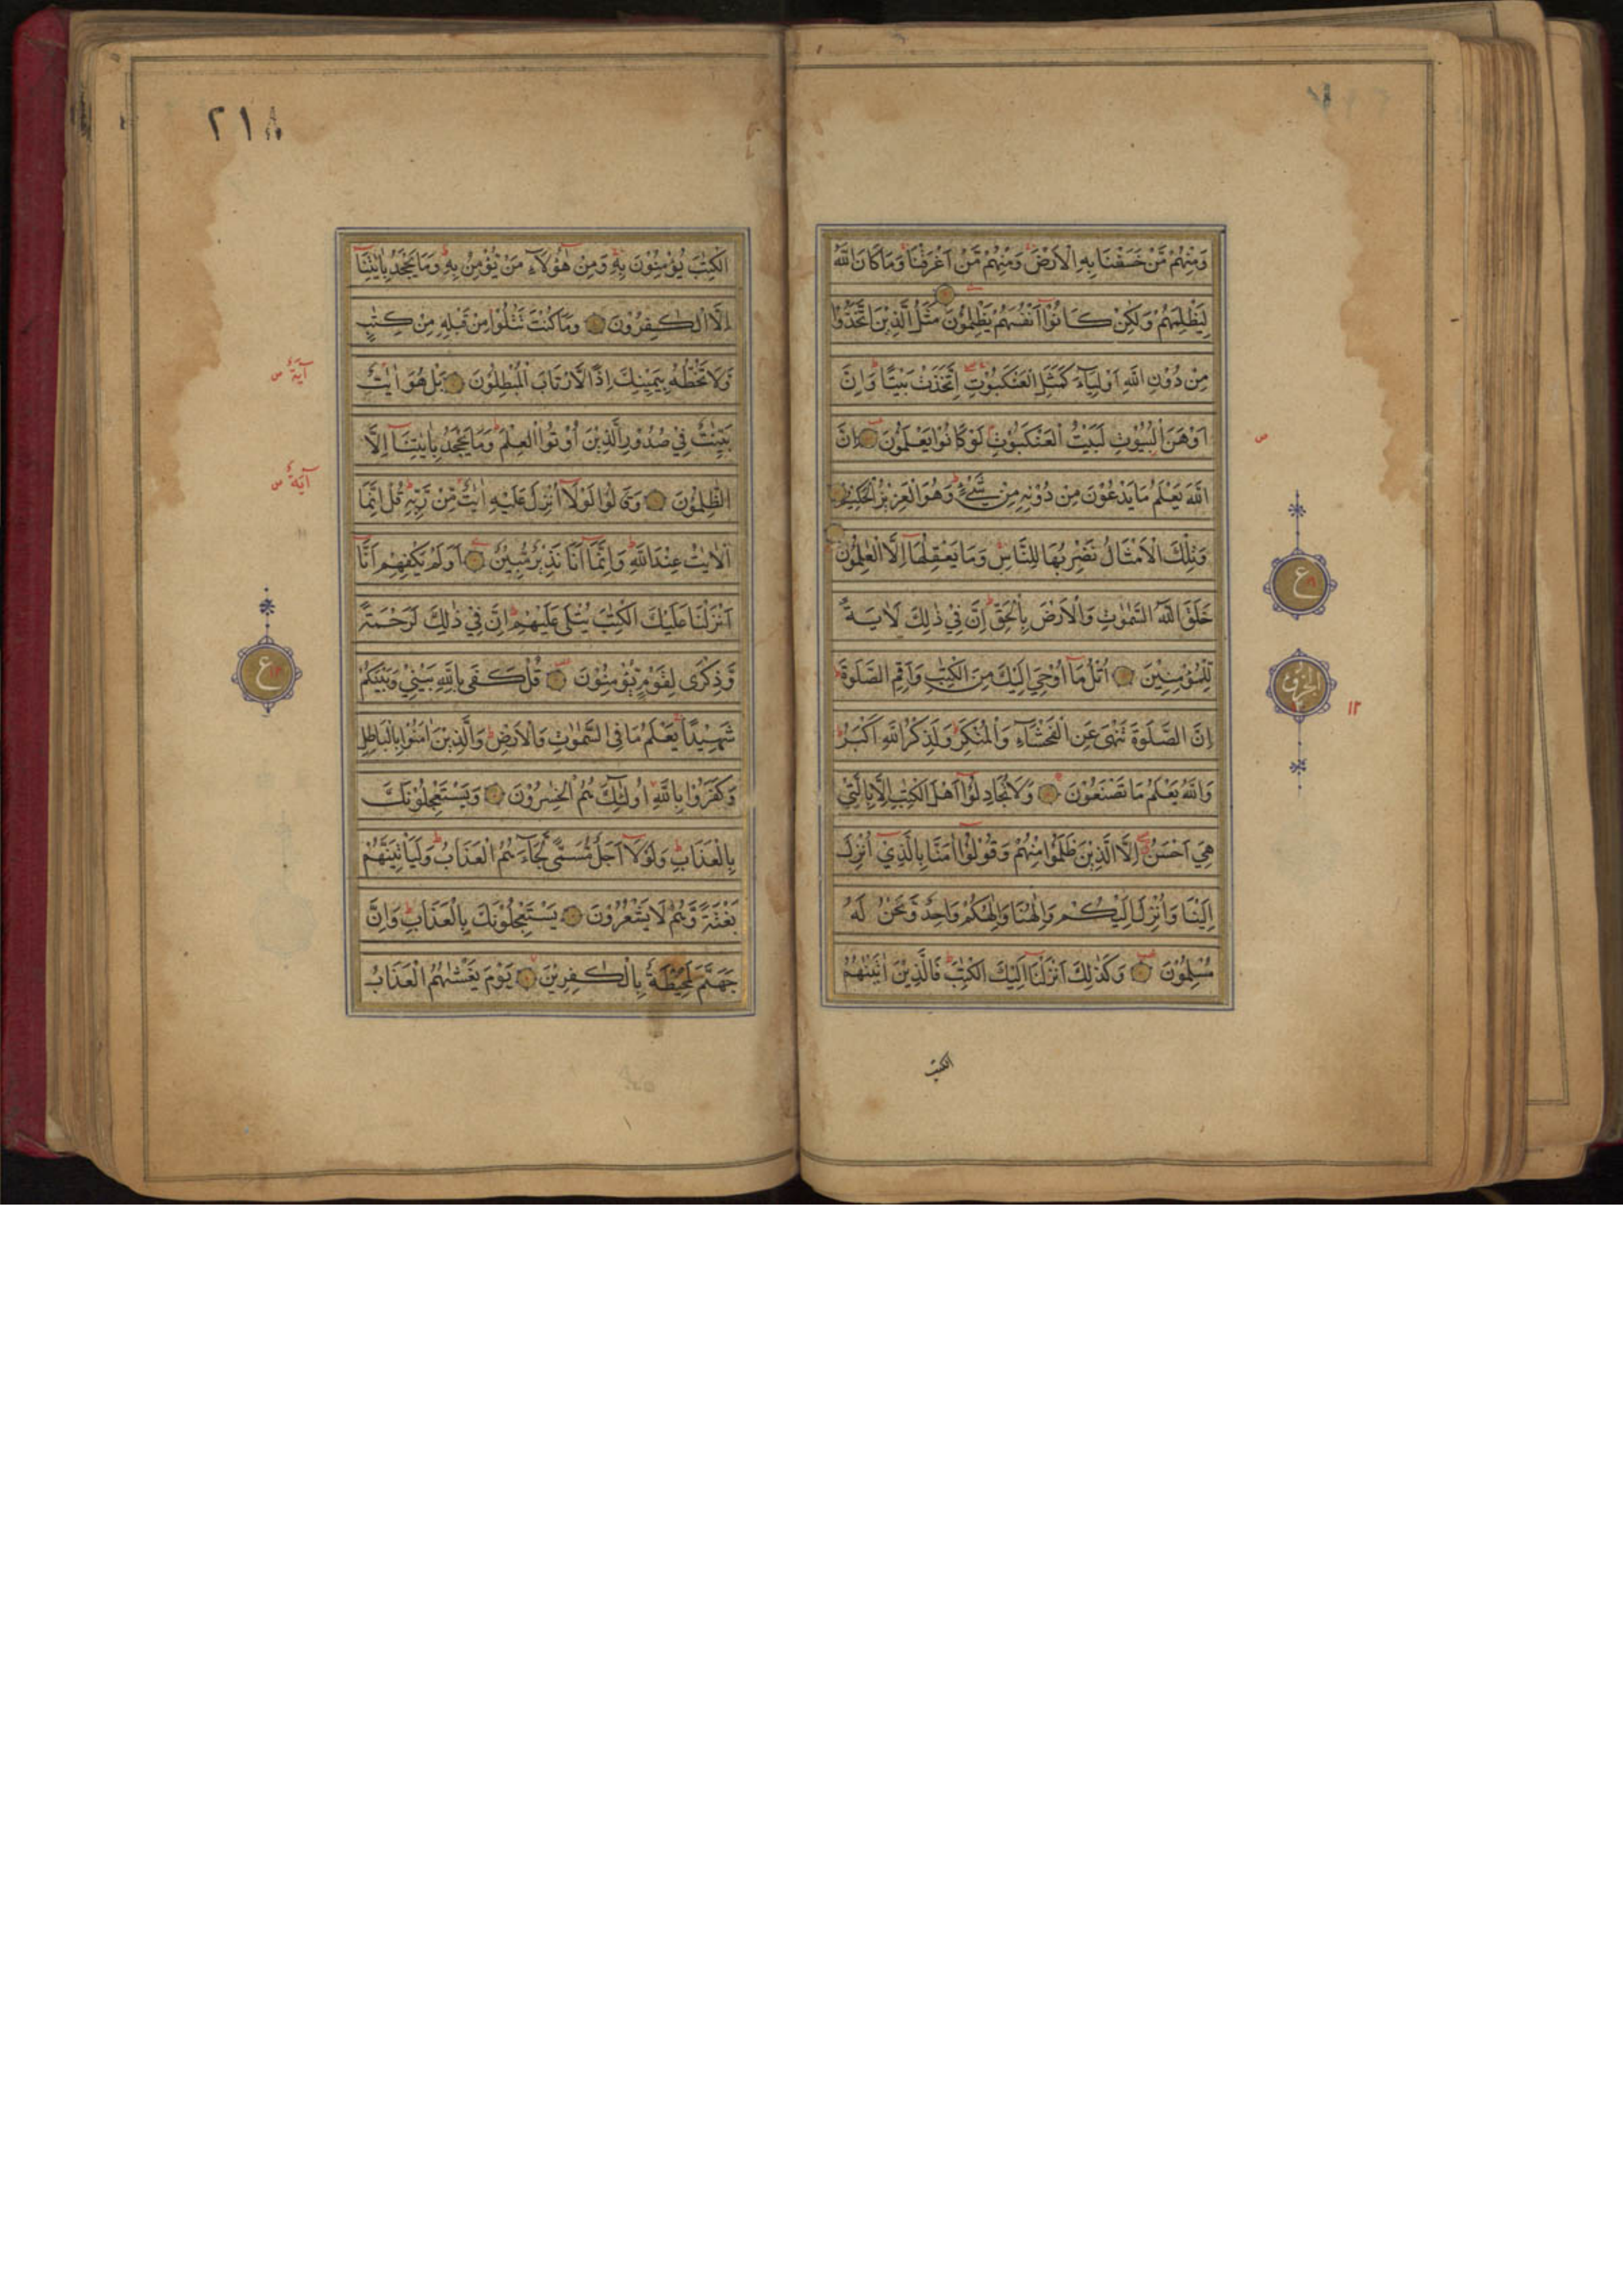 وَمِنْهُمْ مَّنْ خَسَفْنَا بِهِ الْاَرْضَ وَمِنْهُمْ مَّنْ اَغْرَقْنَا وَمَا كَانَ اللّٰهُ
لِيَظْلِمَهُمْ وَلٰكِنْ كَانُوْٓا اَنْفُسَهُمْ يَظْلِمُوْنَ مَثَلُ الَّذِيْنَ اتَّخَذُوْا
مِنْ دُوْنِ اللّٰهِ اَوْلِيَآءَ كَمَثَلِ الْعَنْكَبُوْتِ اِتَّخَذَتْ بَيْتًا وَاِنَّ
اَوْهَنَ الْبُيُوْتِ لَبَيْتُ الْعَنْكَبُوْتِ لَوْ كَانُوْا يَعْلَمُوْنَ اِنَّ
اللّٰهَ يَعْلَمُ مَا يَدْعُوْنَ مِنْ دُوْنِهٖ مِنْ شَيْءٍ وَهُوَ الْعَزِيْزُ الْحَكِيْمُ
وَتِلْكَ الْاَمْثَالُ نَضْرِبُهَا لِلنَّاسِ وَمَا يَعْقِلُهَآ اِلَّا الْعٰلِمُوْنَ
خَلَقَ اللّٰهُ السَّمٰوٰتِ وَالْاَرْضَ بِالْحَقِّ اِنَّ فِيْ ذٰلِكَ لَاٰيَةً
لِّلْمُؤْمِنِيْنَ اُتْلُ مَآ اُوْحِيَ اِلَيْكَ مِنَ الْكِتٰبِ وَاَقِمِ الصَّلٰوةَ
اِنَّ الصَّلٰوةَ تَنْهٰى عَنِ الْفَحْشَآءِ وَالْمُنْكَرِ وَلَذِكْرُ اللّٰهِ اَكْبَرُ
وَاللّٰهُ يَعْلَمُ مَا تَصْنَعُوْنَ وَلَا تُجَادِلُوْٓا اَهْلَ الْكِتٰبِ اِلَّا بِالَّتِيْ
هِيَ اَحْسَنُ اِلَّا الَّذِيْنَ ظَلَمُوْا مِنْهُمْ وَقُوْلُوْٓا اٰمَنَّا بِالَّذِيْٓ اُنْزِلَ
اِلَيْنَا وَاُنْزِلَ اِلَيْكُمْ وَاِلٰهُنَا وَاِلٰهُكُمْ وَاحِدٌ وَّنَحْنُ لَهٗ
مُسْلِمُوْنَ وَكَذٰلِكَ اَنْزَلْنَآ اِلَيْكَ الْكِتٰبَ فَالَّذِيْنَ اٰتَيْنٰهُمُ
الكتب
ص
ع
الحزب
١٢
٢١٨
الْكِتٰبَ يُؤْمِنُوْنَ بِهٖ وَمِنْ هٰٓؤُلَآءِ مَنْ يُّؤْمِنُ بِهٖ وَمَا يَجْحَدُ بِاٰيٰتِنَآ
اِلَّا الْكٰفِرُوْنَ وَمَا كُنْتَ تَتْلُوْا مِنْ قَبْلِهٖ مِنْ كِتٰبٍ
وَّلَا تَخُطُّهٗ بِيَمِيْنِكَ اِذًا لَّارْتَابَ الْمُبْطِلُوْنَ بَلْ هُوَ اٰيٰتٌ
بَيِّنٰتٌ فِيْ صُدُوْرِ الَّذِيْنَ اُوْتُوا الْعِلْمَ وَمَا يَجْحَدُ بِاٰيٰتِنَآ اِلَّا
الظّٰلِمُوْنَ وَقَالُوْا لَوْلَآ اُنْزِلَ عَلَيْهِ اٰيٰتٌ مِّنْ رَّبِّهٖ قُلْ اِنَّمَا
الْاٰيٰتُ عِنْدَ اللّٰهِ وَاِنَّمَآ اَنَا نَذِيْرٌ مُّبِيْنٌ اَوَلَمْ يَكْفِهِمْ اَنَّآ
اَنْزَلْنَا عَلَيْكَ الْكِتٰبَ يُتْلٰى عَلَيْهِمْ اِنَّ فِيْ ذٰلِكَ لَرَحْمَةً
وَّذِكْرٰى لِقَوْمٍ يُّؤْمِنُوْنَ قُلْ كَفٰى بِاللّٰهِ بَيْنِيْ وَبَيْنَكُمْ
شَهِيْدًا يَعْلَمُ مَا فِي السَّمٰوٰتِ وَالْاَرْضِ وَالَّذِيْنَ اٰمَنُوْا بِالْبَاطِلِ
وَكَفَرُوْا بِاللّٰهِ اُولٰٓئِكَ هُمُ الْخٰسِرُوْنَ وَيَسْتَعْجِلُوْنَكَ
بِالْعَذَابِ وَلَوْلَآ اَجَلٌ مُّسَمًّى لَّجَآءَهُمُ الْعَذَابُ وَلَيَاْتِيَنَّهُمْ
بَغْتَةً وَّهُمْ لَا يَشْعُرُوْنَ يَسْتَعْجِلُوْنَكَ بِالْعَذَابِ وَاِنَّ
جَهَنَّمَ لَمُحِيْطَةٌ بِالْكٰفِرِيْنَ يَوْمَ يَغْشٰىهُمُ الْعَذَابُ
آية س
آية س
ع